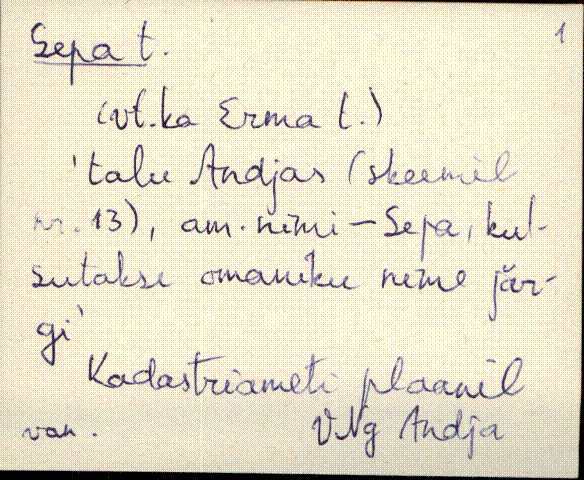 Sepa t. 1
(vt. ka Erma t.)
'talu Andjas (skeemil
nr. 13), am. nimi – Sepa, kut-
sutakse omaniku nime jär-
gi'
Kadastriameti plaanil
van. VNg Andja